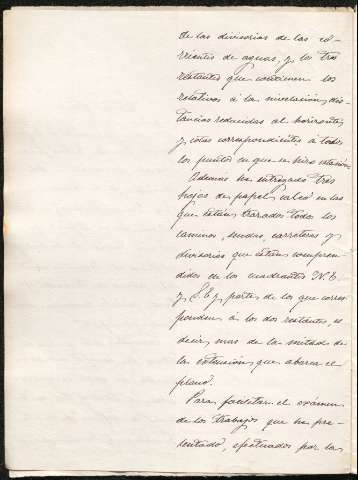 de las divisorias de las co-
rrientes de aguas, y los tres
restantes que contienen los
relativos á la nivelacion, dis-
tancias reducidas al horizonte
y cotas correspondientes á todos
los puntos en que se hizo estacion.
Además ha entregado tres
hojas de papel calco en las
que estan trazados todos los
caminos, sendas, carreteras y
divisorias que estan compren
didos en los cuadrantes N.E.
y S.E. y partes de los que corres
ponden a los dos restantes, es
decir, mas de la mitad de
la extension que abarca el
plano.
Para facilitar el exámen
de los trabajos que ha pre-
sentado, efectuados por la